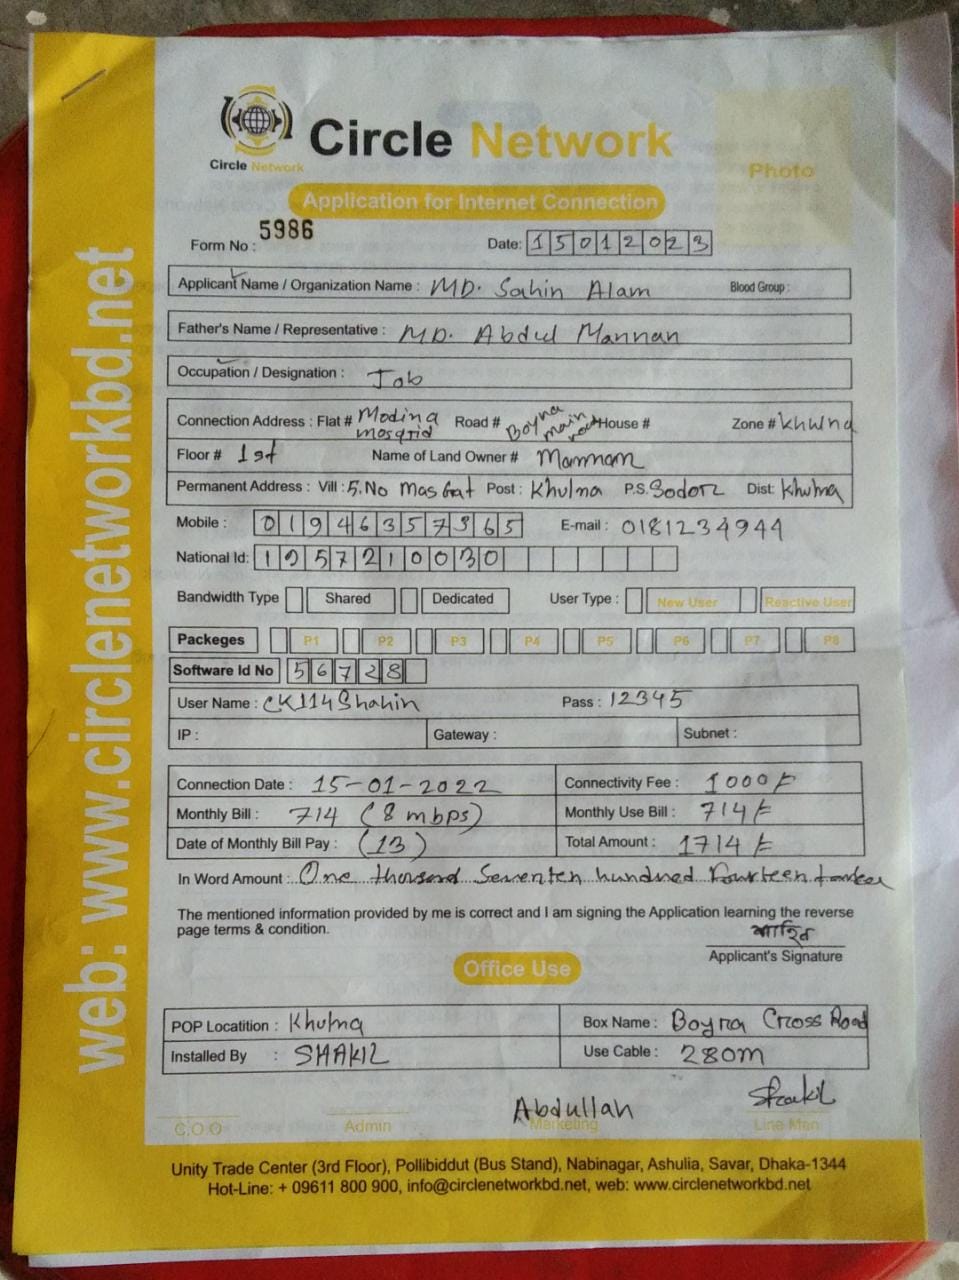 Circle Network
Circle Network
Photo
Application for Internet Connection
Form No : 5986 Date: 15012023
Applicant Name / Organization Name : MD. Sahin Alam Blood Group :
Father's Name / Representative : MD. Abdul Mannan
Occupation / Designation : Job
Connection Address : Flat # Modina mosqrid Road # Boyra main road House # Zone # Khulna
Floor # 1st Name of Land Owner # Mannan
Permanent Address : Vill : 5. No Mas Gat Post : Khulna P.S. Sodor Dist: Khulna
Mobile : 01946357365 E-mail : 0181234944
National Id: 1957210030
Bandwidth Type Shared Dedicated User Type : New User Reactive User
Packeges P1 P2 P3 P4 P5 P6 P7 P8
Software Id No 56728
User Name : CK114Shahin Pass : 12345
IP : Gateway : Subnet :
Connection Date : 15-01-2022 Connectivity Fee : 1000/-
Monthly Bill : 714 (8 mbps) Monthly Use Bill : 714/-
Date of Monthly Bill Pay : (13) Total Amount : 1714/-
In Word Amount : One thousand Seventen hundred Fourteen
The mentioned information provided by me is correct and I am signing the Application learning the reverse
page terms & condition.
শাহিন
Applicant's Signature
Office Use
POP Locatition : Khulna Box Name : Boyra Cross Road
Installed By : SHAKIL Use Cable : 280m
Abdullah Shakil
C.O.O Admin Marketing Line Man
Unity Trade Center (3rd Floor), Pollibiddut (Bus Stand), Nabinagar, Ashulia, Savar, Dhaka-1344
Hot-Line: + 09611 800 900, info@circlenetworkbd.net, web: www.circlenetworkbd.net
web: www.circlenetworkbd.net